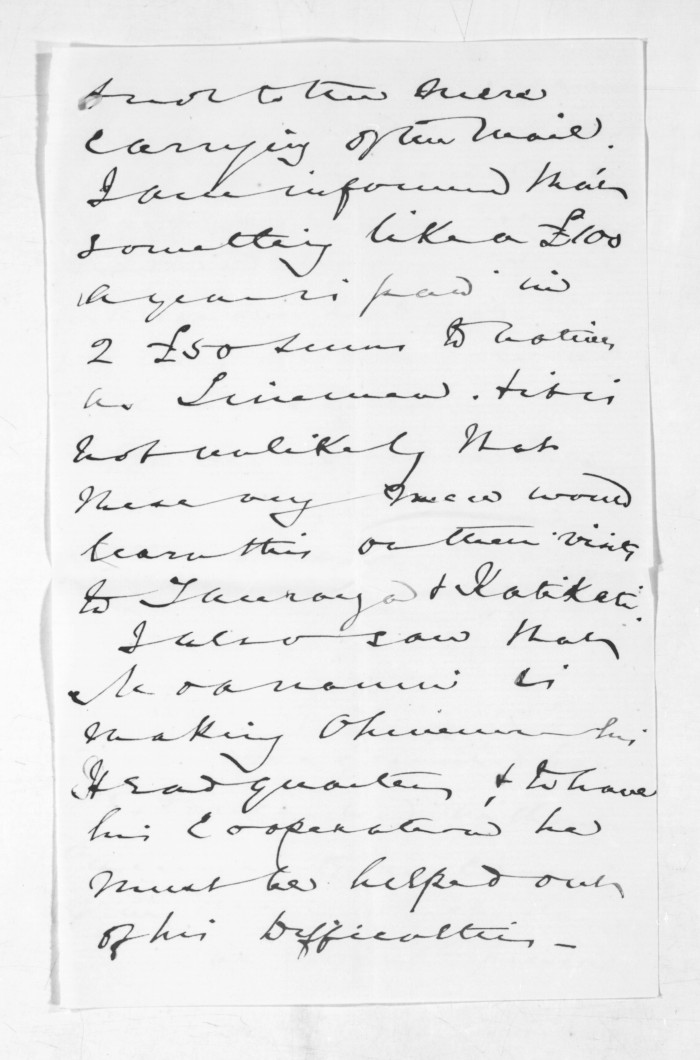 & not to the mere
carrying of the Mail.
I am informed that
something like a £100
a year is paid in
2 £50 sums to Natives
as Linemen. & it is
not unlikely that
these very men would
learn this on their visits
to Tauranga & Katikati.
I also saw that
Moananui is
making Ohinemuri his
Headquarters & to have
his Cooperation he
must be helped out
of his Difficulties –